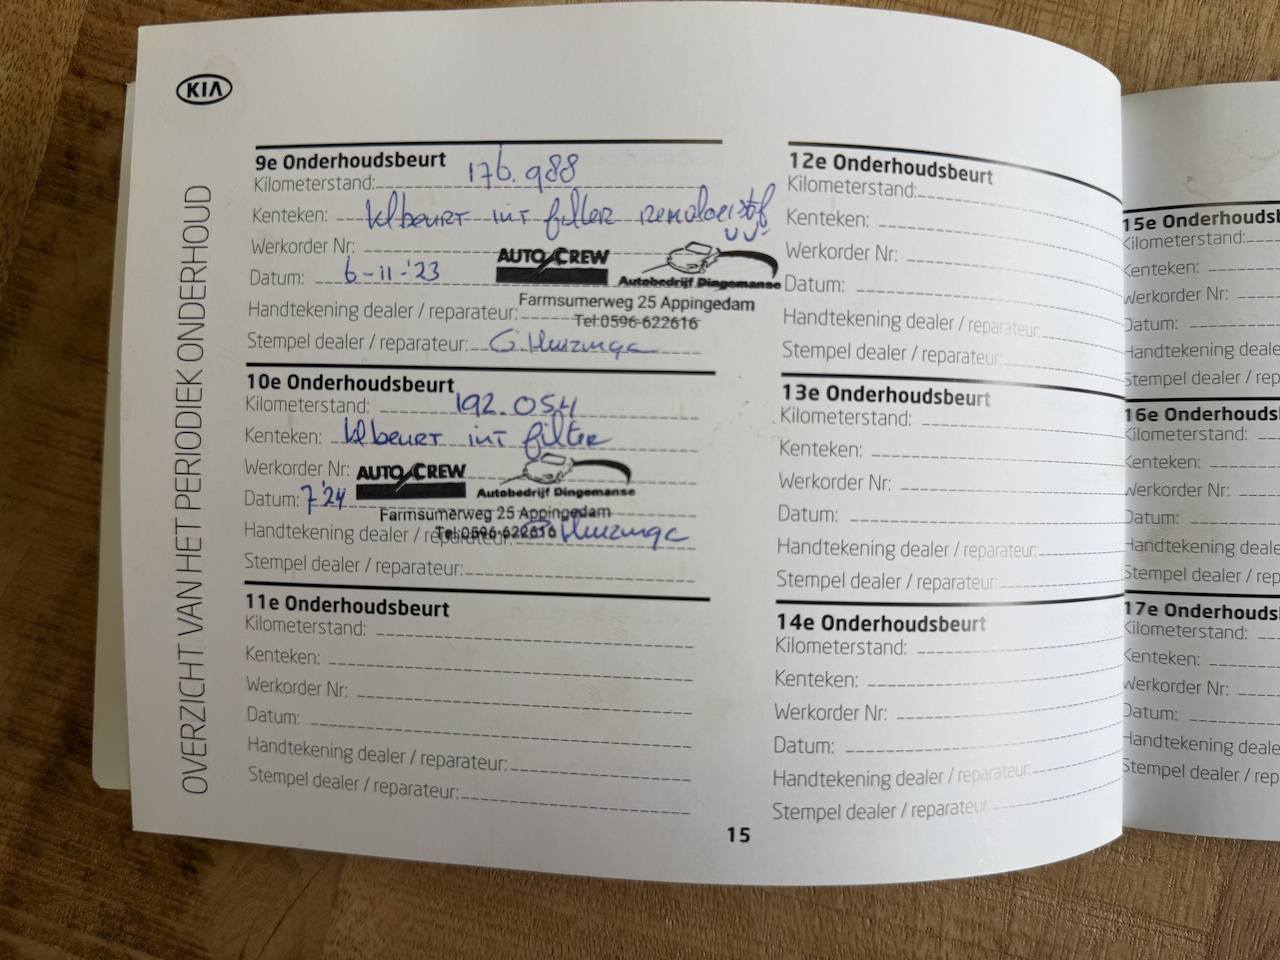 KIA
OVERZICHT VAN HET PERIODIEK ONDERHOUD
9e Onderhoudsbeurt
Kilometerstand: 176.988
Kenteken: Klbeurt int filter remvloeistof
Werkorder Nr:
AUTO CREW
Datum: 6-11-'23
Autobedrijf Dingemanse
Farmsumerweg 25 Appingedam
Handtekening dealer / reparateur:
Tel:0596-622616
Stempel dealer / reparateur: G. Huizinga
10e Onderhoudsbeurt
Kilometerstand: 192.054
Kenteken: Klbeurt int filter
Werkorder Nr:
AUTO CREW
Datum: 7'24
Autobedrijf Dingemanse
Farmsumerweg 25 Appingedam
Handtekening dealer / reparateur: G Huizinga
Tel:0596-622616
Stempel dealer / reparateur:
11e Onderhoudsbeurt
Kilometerstand:
Kenteken:
Werkorder Nr:
Datum:
Handtekening dealer / reparateur:
Stempel dealer / reparateur:
12e Onderhoudsbeurt
Kilometerstand:
Kenteken:
Werkorder Nr:
Datum:
Handtekening dealer / reparateur:
Stempel dealer / reparateur:
13e Onderhoudsbeurt
Kilometerstand:
Kenteken:
Werkorder Nr:
Datum:
Handtekening dealer / reparateur:
Stempel dealer / reparateur:
14e Onderhoudsbeurt
Kilometerstand:
Kenteken:
Werkorder Nr:
Datum:
Handtekening dealer / reparateur:
Stempel dealer / reparateur:
15
15e Onderhoudsb
Kilometerstand:
Kenteken:
Werkorder Nr:
Datum:
Handtekening deale
Stempel dealer / rep
16e Onderhoudsb
Kilometerstand:
Kenteken:
Werkorder Nr:
Datum:
Handtekening deale
Stempel dealer / rep
17e Onderhouds
Kilometerstand:
Kenteken:
Werkorder Nr:
Datum:
Handtekening deale
Stempel dealer / rep